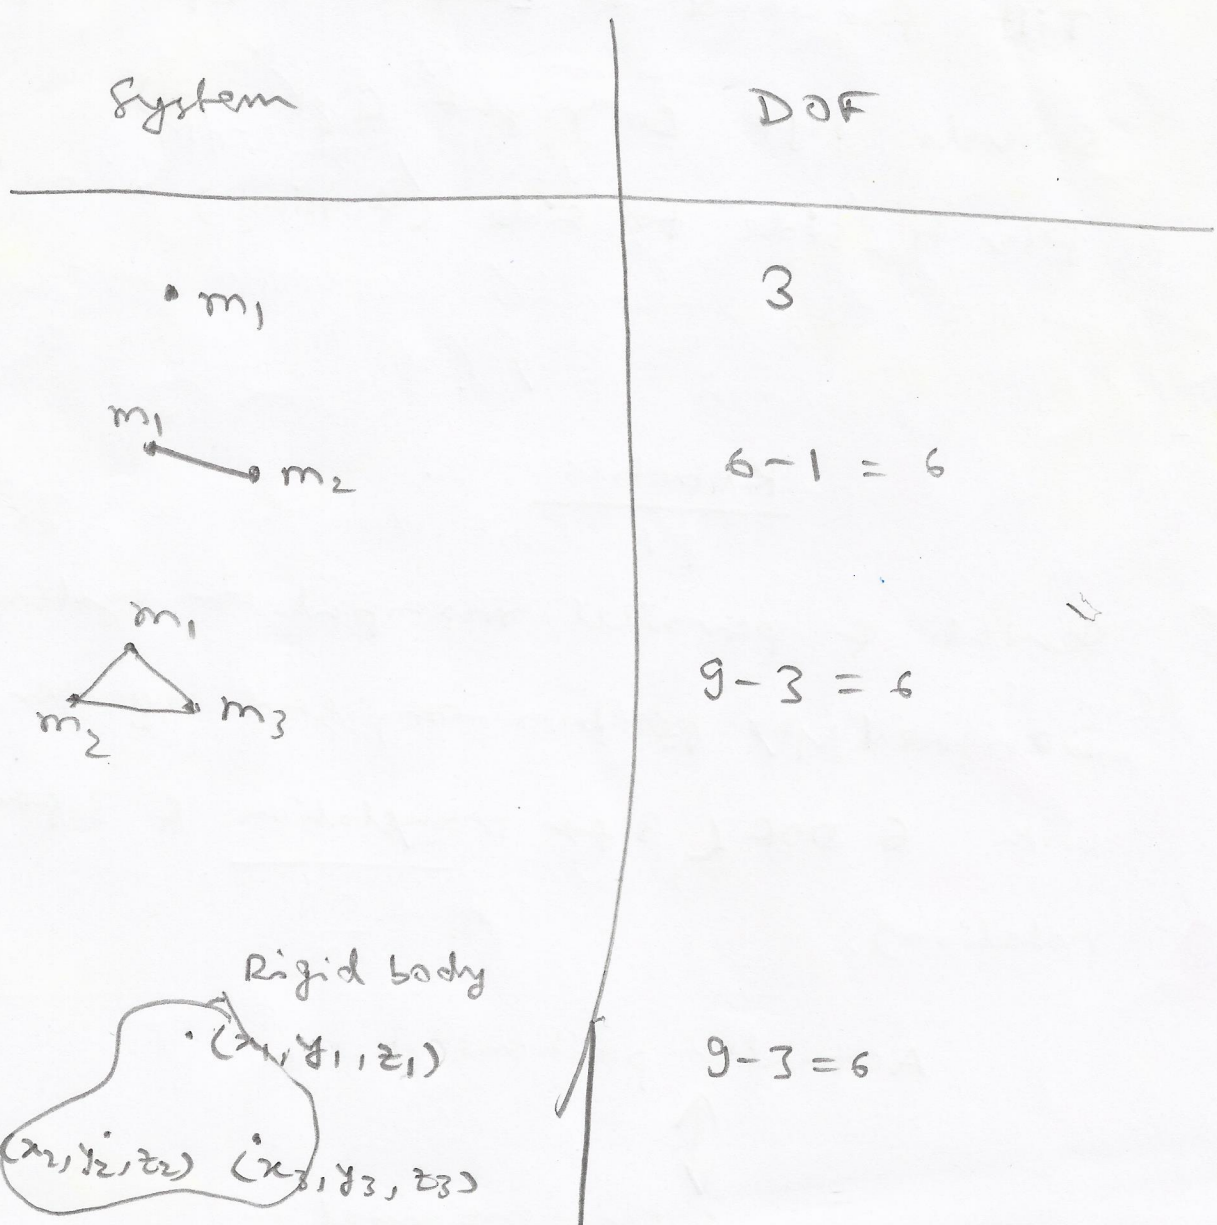 System DOF
• m₁ 3
m₁
m₂ 6-1 = 6
m₁
m₂ m₃ 9-3 = 6
Rigid body
(x₁, y₁, z₁) 9-3=6
(x₂, y₂, z₂) (x₃, y₃, z₃)